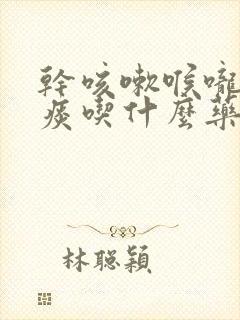 幹咳嗽喉嚨
痰喫什麼藥
林聰穎